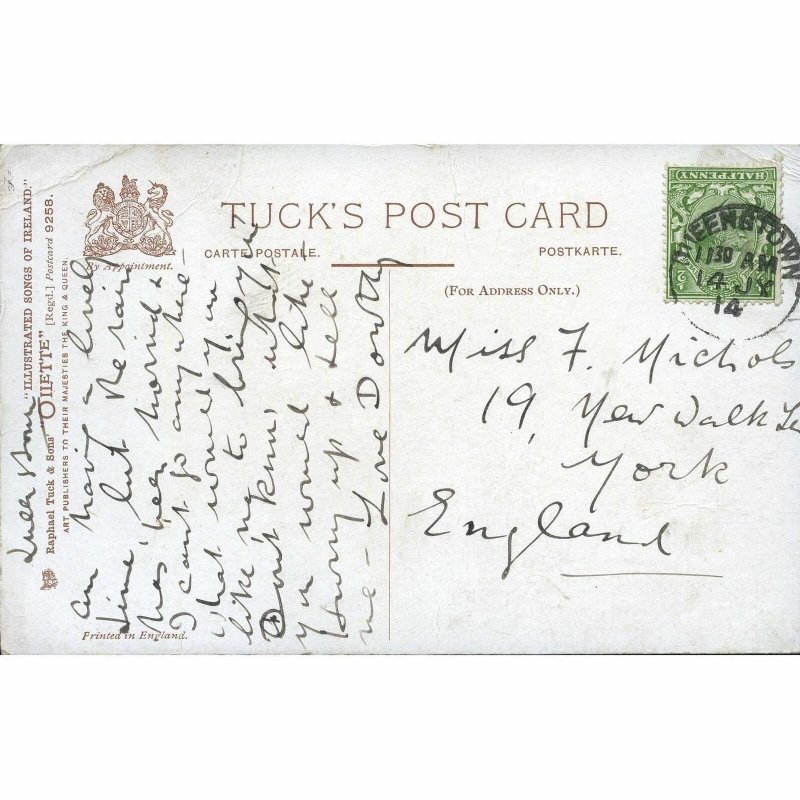 TUCK'S POST CARD
CARTE POSTALE.
POSTKARTE.
(FOR ADDRESS ONLY.)
By Appointment.
"ILLUSTRATED SONGS OF IRELAND."
Raphael Tuck & Sons' "OILETTE" [Regd.] Postcard 9258.
ART PUBLISHERS TO THEIR MAJESTIES THE KING & QUEEN.
Printed in England.
HALFPENNY
QUEENSTOWN
1130 AM
14 JY
14
Miss F. Nichols
19, New Walk Te
York
England
am having a lovely
time but the rain
has been horrid &
I can't go anywhere
What would you
like me to bring you
Don't know what
you would like
Hurry up & tell
me - Love Dorothy